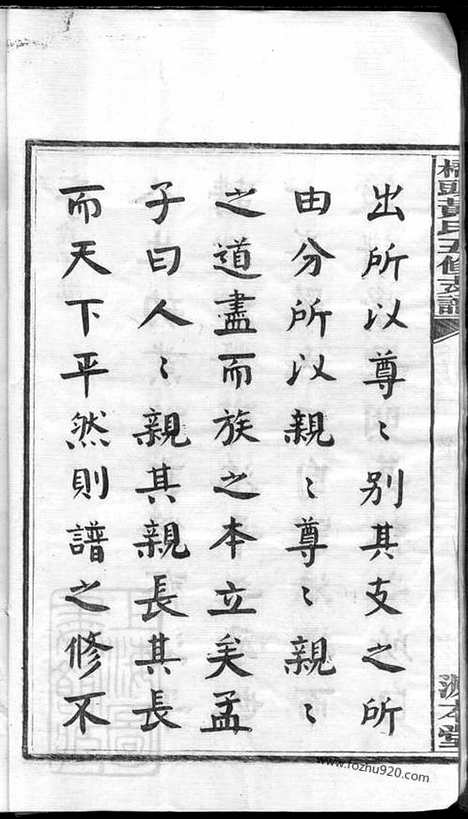 橋頭黃氏五修支譜
源本堂
出所以尊〻別其支之所
由分所以親〻尊〻親〻
之道盡而族之本立矣孟
子曰人〻親其親長其長
而天下平然則譜之修不
www.fozhu920.com